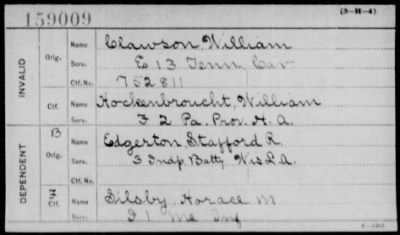 159009
(3-H-4)
INVALID
Orig.
Name Clawson, William
Serv. E. 13 Tenn Cav
Ctf. No. 752811
Ctf. Name Hockenbroucht, William
Serv. 3 2 Pa. Prov. H. A.
DEPENDENT
B
Orig.
Name Edgerton, Stafford R.
Serv. 3 Indp. Batty Wis L. A.
Ctf. No.
Ctf. Name Silsby, Horace M
Serv. 1 Me Inf